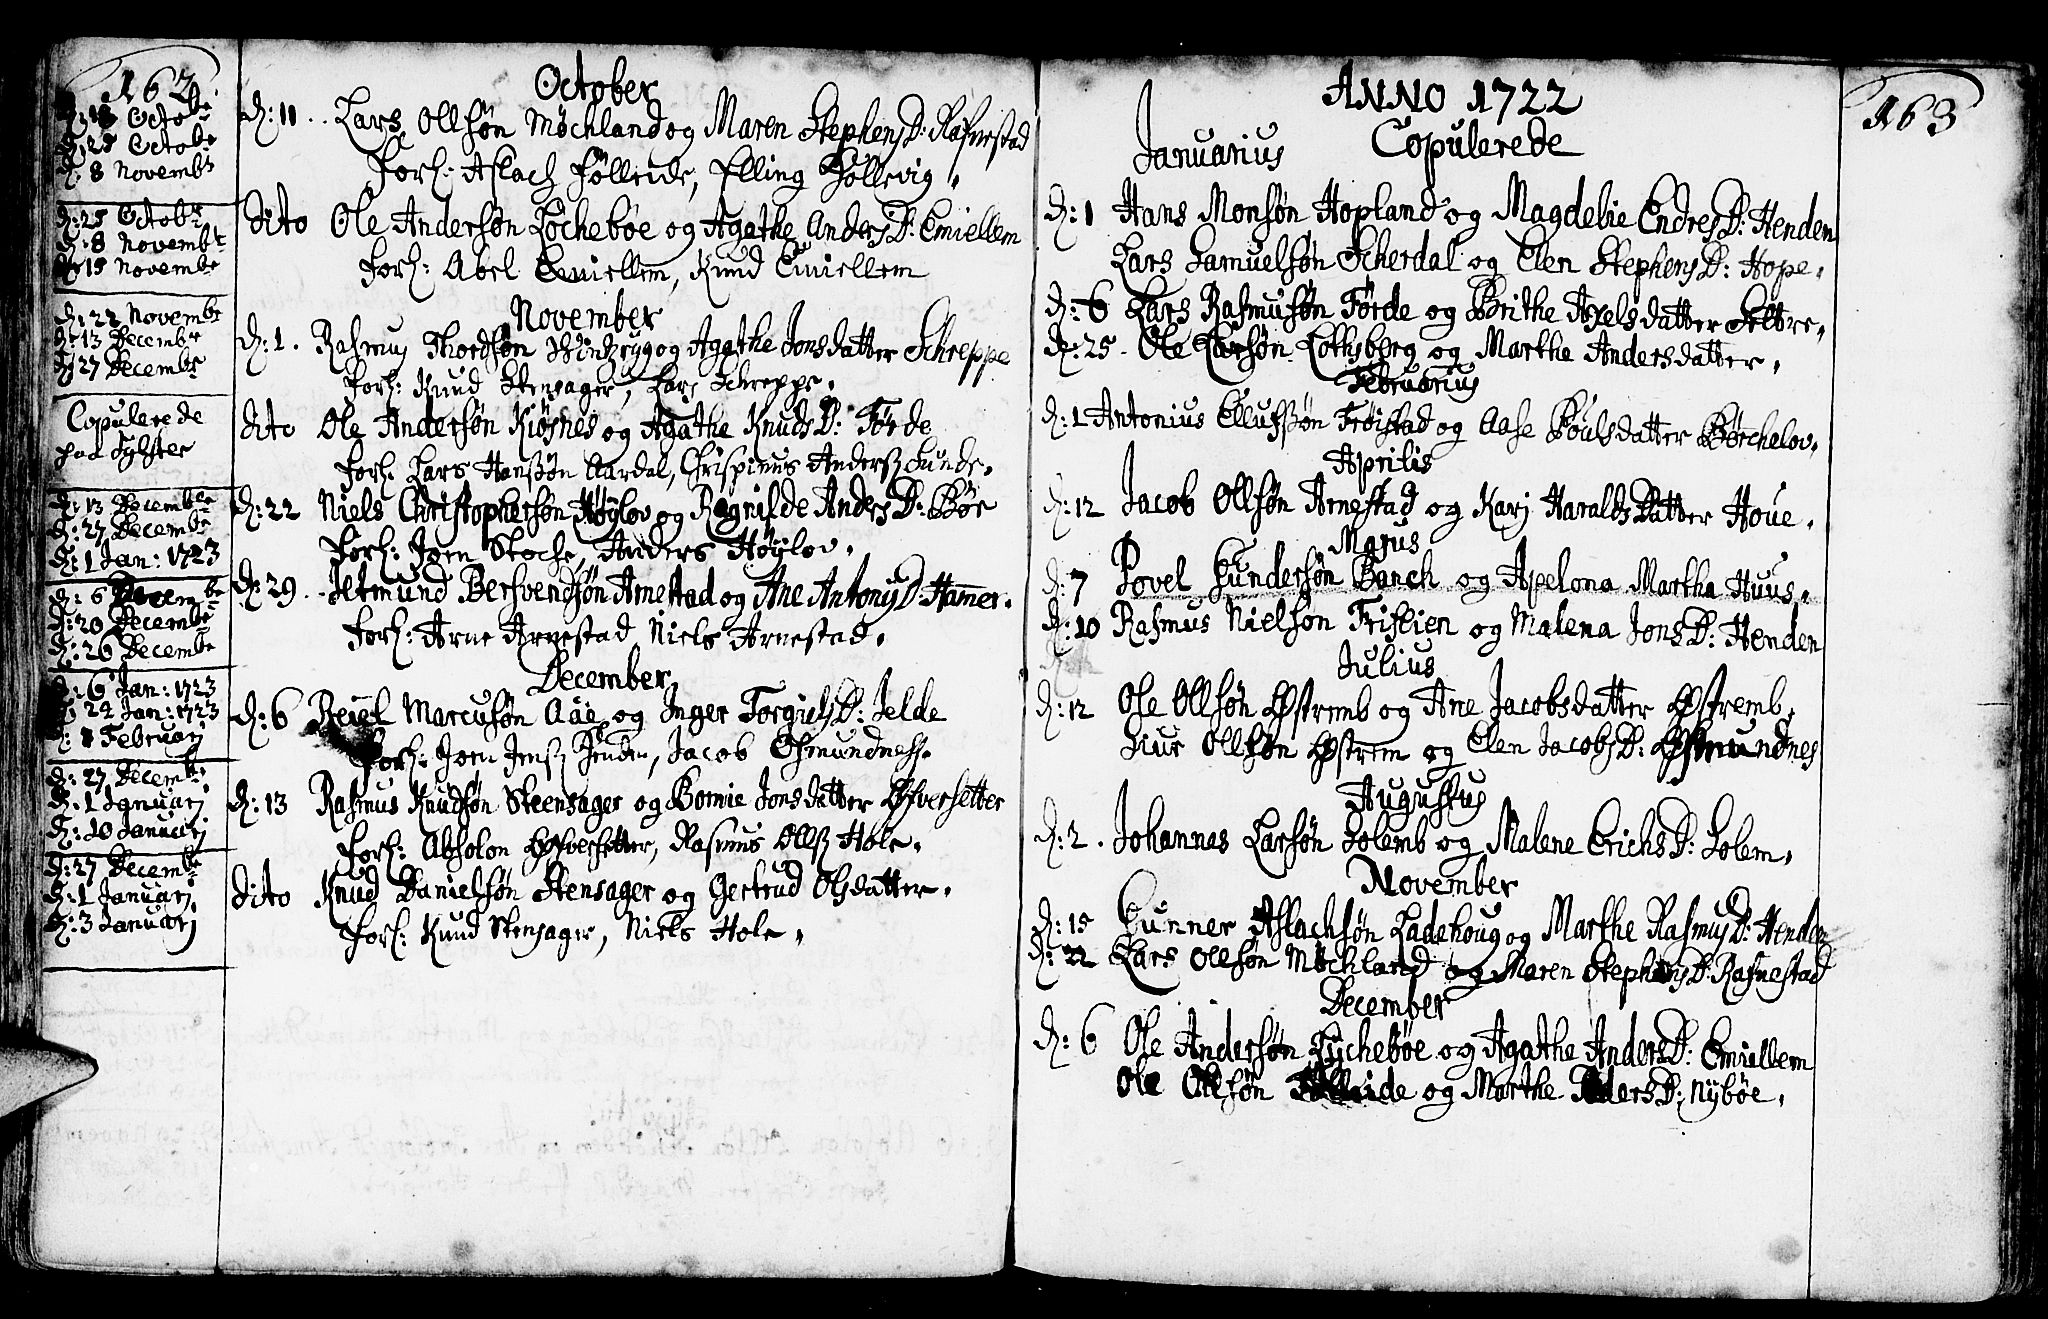 162.
d: 18 Octobe
d: 25 Octobe
d: 8 Novembr
d: 25 Octobr
d: 8 Novembr
d: 15 Novembe
d: 22 Novembr
d: 13 Decembr
d: 27 Decembr
Copulerede
paa Sylster
d: 13 Decembr
d: 27 Decembe
d: 1 Jan: 1723
d: 6 Decembe
d: 20 Decembe
d: 26 Decembe
d: 6 Jan: 1723
24 Jan: 1723
Februarj
d: 27 Decembr
d: 1 Januarj
d: 10 Januarj
d: 27 Decembe
d: 1 Januarj
d: 3 Januarj
October
d: 11 .. Lars Ollsøn Møchland og Maren StephensD: Rafnestad
Forl: Aslach Følleide, Elling Søllevig.
dito Ole Andersøn Løchebøe og Agathe AndersD: Emiellem
Forl: Abel Emiellem, Knud Emiellem
November
d: 1. Rasmus Thordsøn Windryg og Agathe Jonsdatter Schreppe
Forl: Knud Stensager, Lars Schreppe.
dito Ole Andersøn Kiøsnes og Agathe KnudsD: Førde
Forl: Lars Hanssøn Aardal, Chrispinus Anderss Sunde.
d: 22 Niels Christophersøn Høylov og Regnilde AndersD: Bøe
Forl: Joen Stoche, Anders Høylov.
d: 29 .. Jetmund Bersvendsøn Arnestad og Ane AntonysD: Hamer.
Forl: Arne Arnestad, Niels Arnestad.
December
d: 6 Reiel Marcusøn Aae og Inger TorgielsD: Jelde
Forl: Joen Jenss Henden, Jacob Osmundness.
d: 13 Rasmus Knudsøn Steensager og Bomie Jonsdatter Øfversetter
Forl: Absolon Øfversetter, Rasmus Ollss Hole.
dito Knud Danielsøn Stensager og Gertrud Olsdatter.
Forl: Knud Stensager, Niels Hole.
163
ANNO 1722
Copulerede
Januarius
d: 1 Hans Monsøn Hopland og Magdelie EndresD: Henden
Lars Samuelsøn Scherdal og Elen StephensD: Hope.
d: 6 Lars Rasmusøn Førde og Brithe Axelsdatter Seltre.
d: 25 - Ole Larsøn Lothsberg og Marthe Andersdatter.
Februarius
d: 1 Antonius Ellufssøn Frøistad og Aase Poulsdatter Børchelov.
Aprilis
d: 12 Jacob Ollsøn Arnestad og Karj HaraldsDatter Houe.
Majus
d: 7 Povel Gundersøn Banch og Apelona Martha Huus.
d: 10 Rasmus Nielson Frislien og Malena JonsD: Henden
Julius
d: 12 Ole Ollsøn Østremb og Ane Jacobsdatter Østremb,
Siur Ollsøn Østrem og Elen JacobsD: Osmundnes
Augustus
d: 2. Johannes Larsøn Solemb og Malene ErichsD: Solem.
November
d: 15 Gunner Aslachsøn Ladehoug og Marthe RasmusD: Henden
d: 22 Lars Ollsøn Møchland og Maren StephensD: Rafnestad
December
d: 6 Ole Andersøn Lychebøe og Agathe AndersD: Emiellem
Ole Ollsøn Følleide og Marthe AndersD: Nybøe.